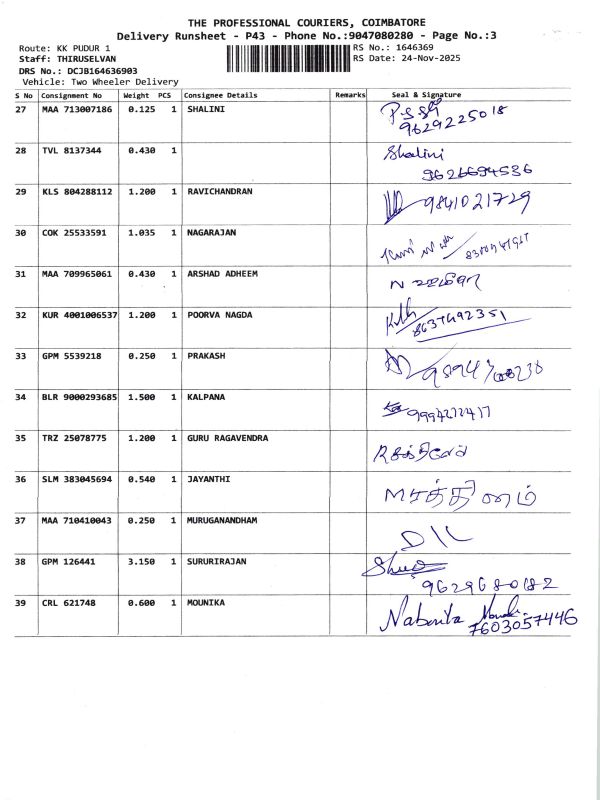 THE PROFESSIONAL COURIERS, COIMBATORE
Delivery Runsheet - P43 - Phone No.:9047080280 - Page No.:3
Route: KK PUDUR 1 RS No.: 1646369
Staff: THIRUSELVAN RS Date: 24-Nov-2025
DRS No.: DCJB164636903
Vehicle: Two Wheeler Delivery
S No Consignment No Weight PCS Consignee Details Remarks Seal & Signature
27 MAA 713007186 0.125 1 SHALINI
9629225018
28 TVL 8137344 0.430 1 Shalini
9626694536
29 KLS 804288112 1.200 1 RAVICHANDRAN 9841021729
30 COK 25533591 1.035 1 NAGARAJAN
31 MAA 709965061 0.430 1 ARSHAD ADHEEM
32 KUR 4001006537 1.200 1 POORVA NAGDA
33 GPM 5539218 0.250 1 PRAKASH
34 BLR 9000293685 1.500 1 KALPANA
35 TRZ 25078775 1.200 1 GURU RAGAVENDRA
36 SLM 383045694 0.540 1 JAYANTHI
37 MAA 710410043 0.250 1 MURUGANANDHAM
38 GPM 126441 3.150 1 SURURIRAJAN
9629680182
39 CRL 621748 0.600 1 MOUNIKA
7603057446